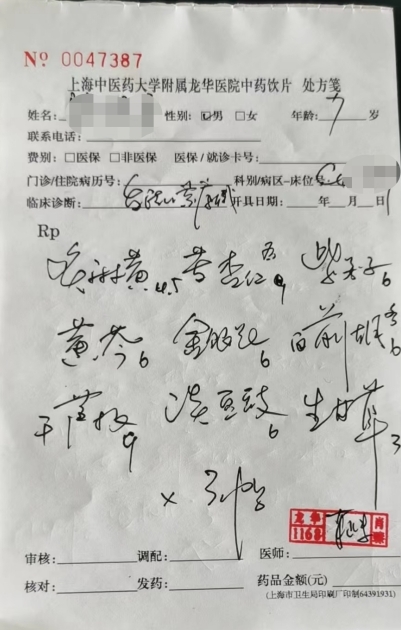 Nº 0047387
上海中医药大学附属龙华医院中药饮片 处方笺
姓名: 性别: ☑男 □女 年龄: 7 岁
联系电话:
费别: □医保 □非医保 医保/就诊卡号:
门诊/住院病历号: 科别/病区-床位号
临床诊断: 开具日期: 年 月 日
Rp
炙麻黄 4.5 苦杏仁 9 6
黄芩 6 金 6 白前 6
干芦根 9 淡豆豉 6 生甘草 3
× 3帖
龙华 1168 肖臻
审核: 调配: 医师:
核对: 发药: 药品金额(元)
(上海市卫生局印刷厂印制64391931)